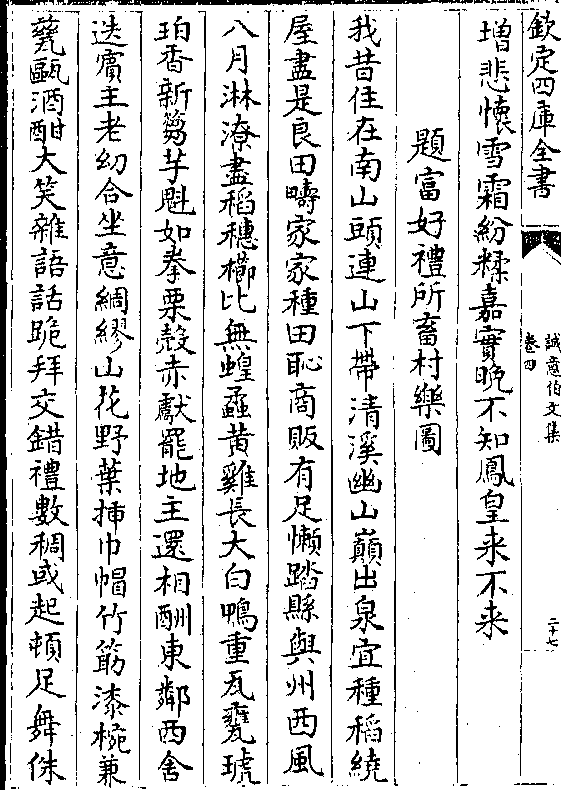 欽定四庫全書
誠意伯文集
卷四
二十七
增悲懷雪霜紛糅嘉實晚不知鳳皇来不来
題富好禮所畜村樂圖
我昔住在南山頭連山下帶清溪幽山巔出泉宜種稻繞
屋盡是良田疇家家種田恥商販有足懶踏縣與州西風
八月淋潦盡稻穗櫛比無蝗蟊黄雞長大白鴨重瓦甕琥
珀香新篘芋魁如拳栗殻赤獻罷地主還相酬東鄰西舍
迭賔主老幼合坐意綢繆山花野葉揷巾帽竹筯漆椀兼
甆甌酒酣大笑雜語話跪拜交錯禮數稠或起頓足舞侏